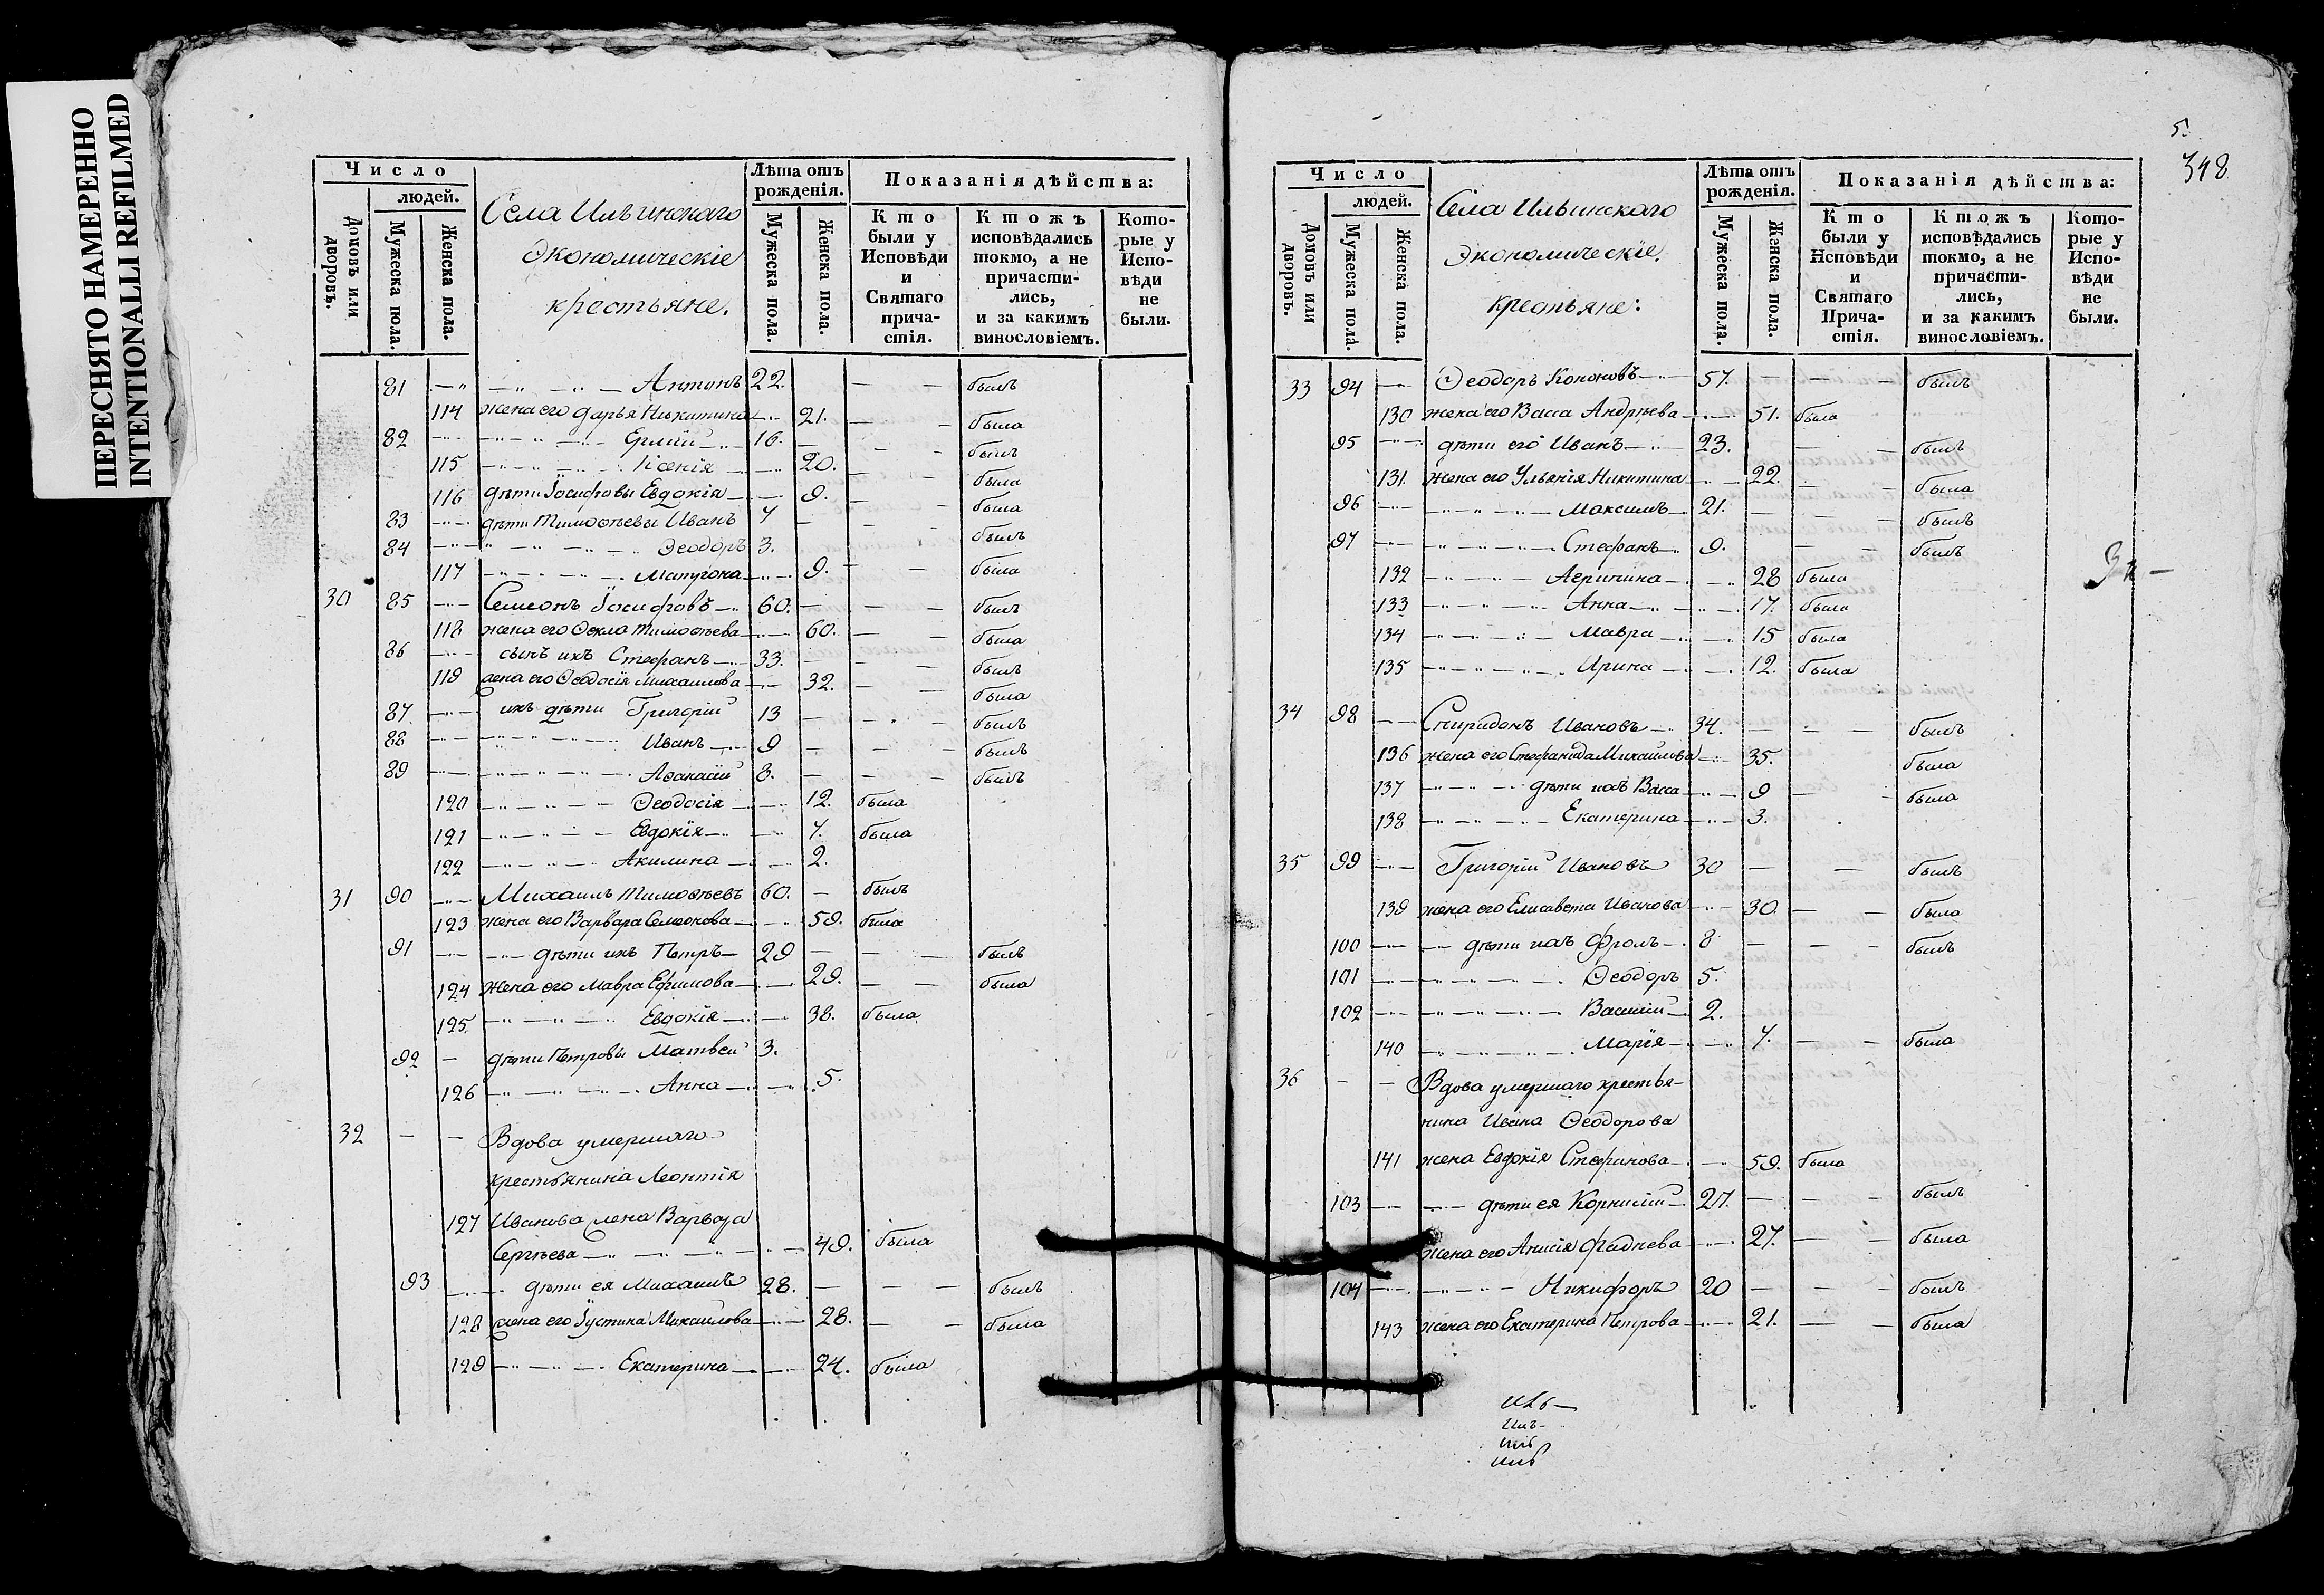 ПЕРЕСНЯТО НАМЕРЕННО
INTENTIONALLI REFILMED
Число
людей.
Домовъ или дворовъ.
Мужеска пола.
Женска пола.
Села Ильинскаго
Экономическіе
крестьяне.
Лѣта отъ рожденія.
Мужеска пола.
Женска пола.
Показанія дѣйства:
Кто были у Исповѣди и Святаго причастія.
Ктожъ исповѣдались токмо, а не причастились, и за какимъ винословіемъ.
Которые у Исповѣди не были.
81 Антонъ 22. былъ
114 жена его Дарья Никитина 21. была
82 Ермий 16. былъ
115 Ксенія 20. была
116 дѣти Іосифовы Евдокія 9. была
83 дѣти Тимоѳеевы Иванъ 7 былъ
84 Ѳеодоръ 3.
117 Матрона 9. была
30 85 Симеонъ Іосифовъ 60. былъ
118 жена его Ѳекла Тимоѳеева 60. была
86 сынъ ихъ Стефанъ 33. былъ
119 жена его Ѳеодосія Михаилова 32. была
87 ихъ дѣти Григорій 13 былъ
88 Иванъ 9 былъ
89 Аѳанасій 8. былъ
120 Ѳеодосія 12. была
121 Евдокія 7. была
122 Акилина 2.
31 90 Михаилъ Тимоѳеевъ 60. былъ
123 жена его Варвара Семенова 59. была
91 дѣти ихъ Петръ 29 былъ
124 жена его Мавра Ефимова 29. была
125. Евдокія 38. была
92 дѣти Петровы Матвей 3.
126 Анна 5.
32 Вдова умершаго
крестьянина Леонтія
127 Иванова жена Варвара
Сергѣева 49. была
93 дѣти ея Михаилъ 28. былъ
128 жена его Іустина Михаилова 28. была
129 Екатерина 24. была
5.
348
Число
людей.
Домовъ или дворовъ.
Мужеска пола.
Женска пола.
Села Ильинскаго
Экономическіе.
крестьяне:
Лѣта отъ рожденія.
Мужеска пола.
Женска пола.
Показанія дѣйства:
Кто были у Исповѣди и Святаго Причастія.
Ктожъ исповѣдались токмо, а не причастились, и за какимъ винословіемъ.
Которые у Исповѣди не были.
33 94 Ѳеодоръ Кононовъ 57. былъ
130 жена его Васса Андрѣева 51. была
95 дѣти его Иванъ 23. былъ
131. жена его Ульянія Никитина 22. была
96 Максимъ 21. былъ
97 Стефанъ 9. былъ
132 Агрипина 28 была
133 Анна 17. была
134 Мавра 15 была
135 Ирина 12. была
34 98 Спиридонъ Ивановъ 34. былъ
136 жена его Стефанида Михаилова 35. была
137 дѣти ихъ Васса 9 была
138 Екатерина 3.
35 99 Григорій Ивановъ 30 былъ
139 жена его Елисавета Иванова 30. была
100 дѣти ихъ Фролъ 8 былъ
101 Ѳеодоръ 5.
102 Василий 2.
140 Марія 7. была
36 Вдова умершаго крестья-
нина Ивана Ѳеодорова
141 жена Евдокія Стефанова 59. была
103 дѣти ея Корнилій 27. былъ
жена его Анисія Фадѣева 27. была
104 Никифоръ 20 былъ
143 жена его Екатерина Петрова 21. была